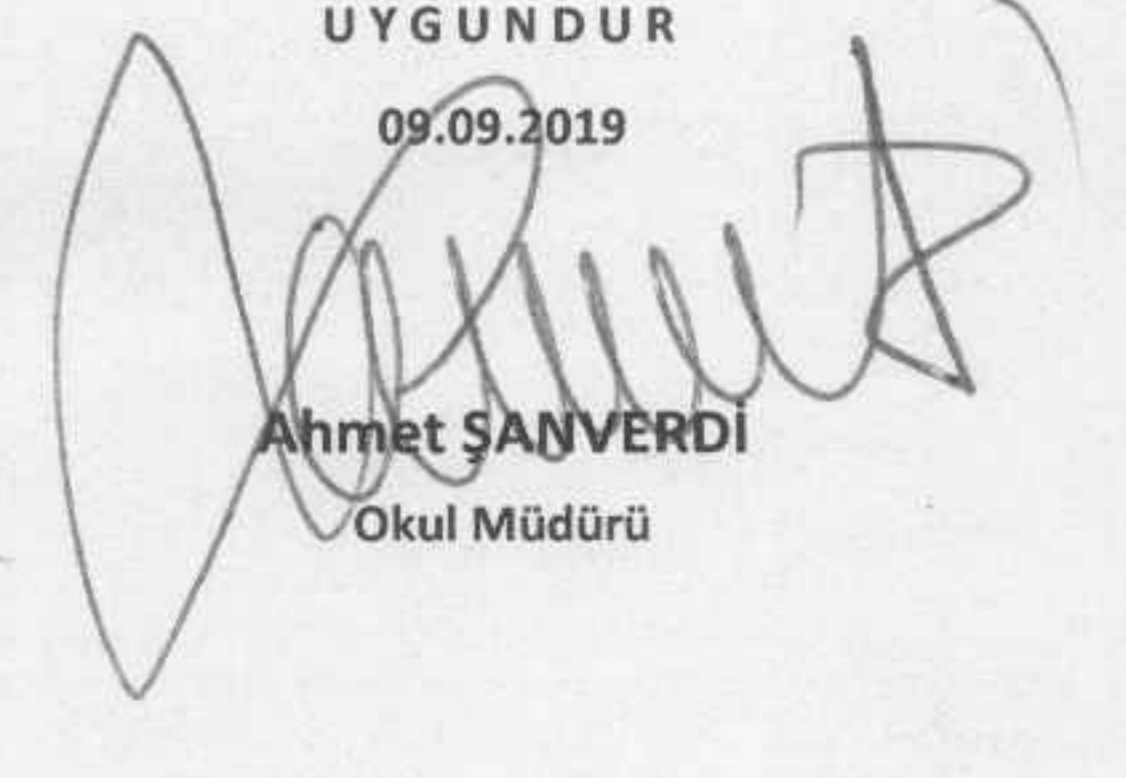 UYGUNDUR
09.09.2019
Ahmet ŞANVERDİ
Okul Müdürü